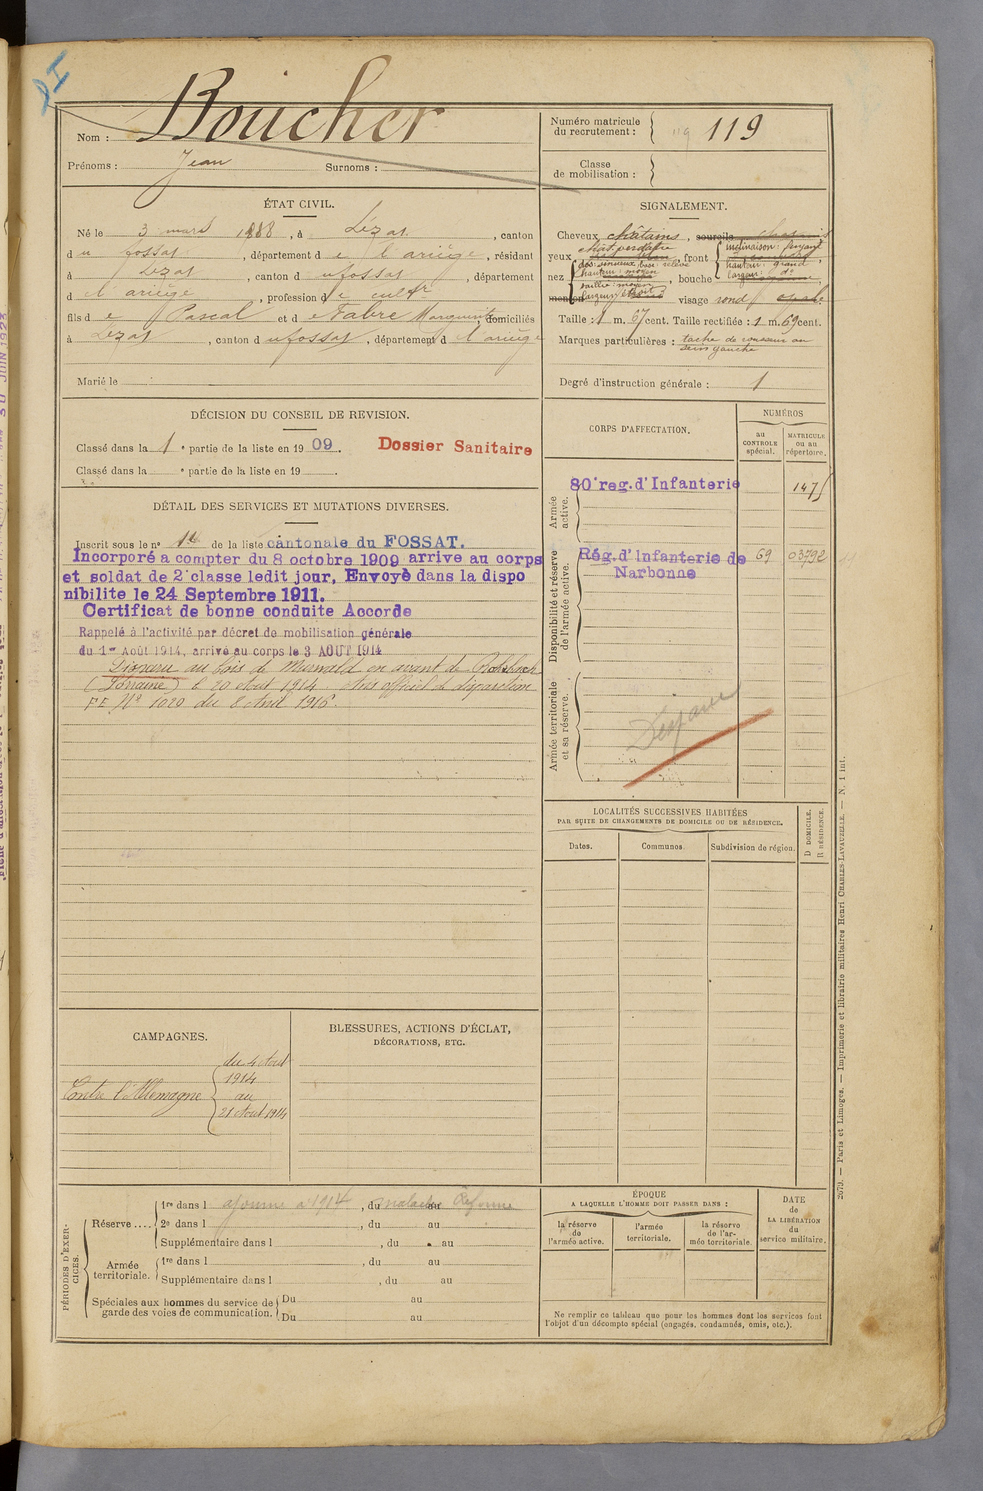 Boucher
Nom :
Prénoms : Jean Surnoms :
Numéro matricule
du recrutement : 119 119
Classe
de mobilisation :
ÉTAT CIVIL.
Né le 3 mars 1888, à Lézat, canton
du fossat, département de l'ariège, résidant
à Lézat, canton du fossat, département
d l'ariège, profession de cultr
fils de Pascal et de Fabre Marguerite, domiciliés
à Lézat, canton du fossat, département d l'ariège
Marié le
SIGNALEMENT.
Cheveux châtains, sourcils
yeux chât. verdâtre, front inclinaison : fuyant
hauteur : grand
largeur : do
nez dos: sinueux, base: relevé
hauteur: moyen
saillie: moyen
largeur: étroit, bouche
menton visage rond
Taille : 1 m. 67 cent. Taille rectifiée : 1 m. 69 cent.
Marques particulières : tache de rousseur au
sein gauche
Degré d'instruction générale : 1
DÉCISION DU CONSEIL DE REVISION.
Classé dans la 1e partie de la liste en 1909. Dossier Sanitaire
Classé dans la e partie de la liste en 19
DÉTAIL DES SERVICES ET MUTATIONS DIVERSES.
Inscrit sous le no de la liste cantonale du FOSSAT.
Incorporé a compter du 8 octobre 1909 arrive au corps
et soldat de 2e classe ledit jour, Envoyé dans la dispo
nibilite le 24 Septembre 1911.
Certificat de bonne conduite Accorde
Rappelé à l'activité par décret de mobilisation générale
du 1er Août 1914, arrivé au corps le 3 AOUT 1914
Disparu au bois de Muswald en avant de Rohrbach
(Lorraine) le 20 Aout 1914. Avis officiel de disparition
FE No 1020 du 8 Avril 1916.
CORPS D'AFFECTATION.
NUMÉROS
au
CONTROLE
spécial.
MATRICULE
ou au
répertoire.
Armée
active.
80e reg. d'Infanterie 1475
Disponibilité et réserve
de l'armée active.
Rég. d'Infanterie de
Narbonne 69 03792
Armée territoriale
et sa réserve.
Disparu
LOCALITÉS SUCCESSIVES HABITÉES
PAR SUITE DE CHANGEMENTS DE DOMICILE OU DE RÉSIDENCE.
Dates. Communes. Subdivision de région.
D DOMICILE.
R RÉSIDENCE.
CAMPAGNES.
Contre l'Allemagne
du 4 Aout
1914
au
21 Aout 1914
BLESSURES, ACTIONS D'ÉCLAT,
DÉCORATIONS, ETC.
PÉRIODES D'EXER-
CICES.
Réserve ....
1re dans l ajourné à 1914, du malade au Réforme
2e dans l , du au
Supplémentaire dans l , du au
Armée
territoriale.
1re dans l , du au
Supplémentaire dans l , du au
Spéciales aux hommes du service de
garde des voies de communication.
Du au
Du au
ÉPOQUE
A LAQUELLE L'HOMME DOIT PASSER DANS :
la réserve
de
l'armée active.
l'armée
territoriale.
la réserve
de l'ar-
mée territoriale.
DATE
de
LA LIBÉRATION
du
service militaire.
Ne remplir ce tableau que pour les hommes dont les services font
l'objet d'un décompte spécial (engagés, condamnés, omis, etc.).
2079. — Paris et Limoges. — Imprimerie et librairie militaires Henri CHARLES-LAVAUZELLE. — N. 1 int.
30 JUIN 1923